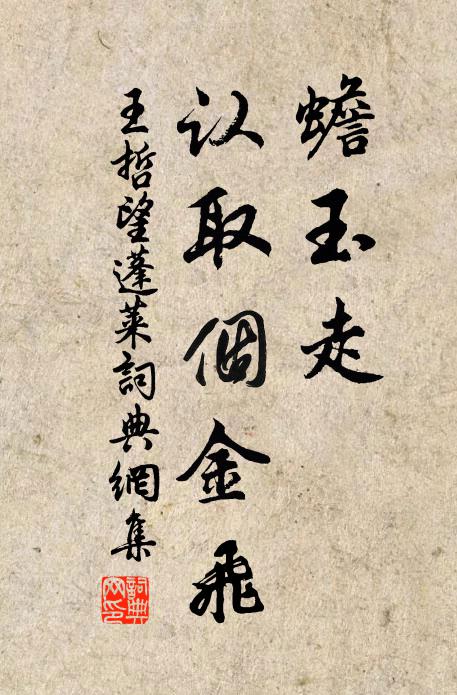 蟾玉走
认取個金飛
王哲望蓬萊詞典網集
詞典
网印